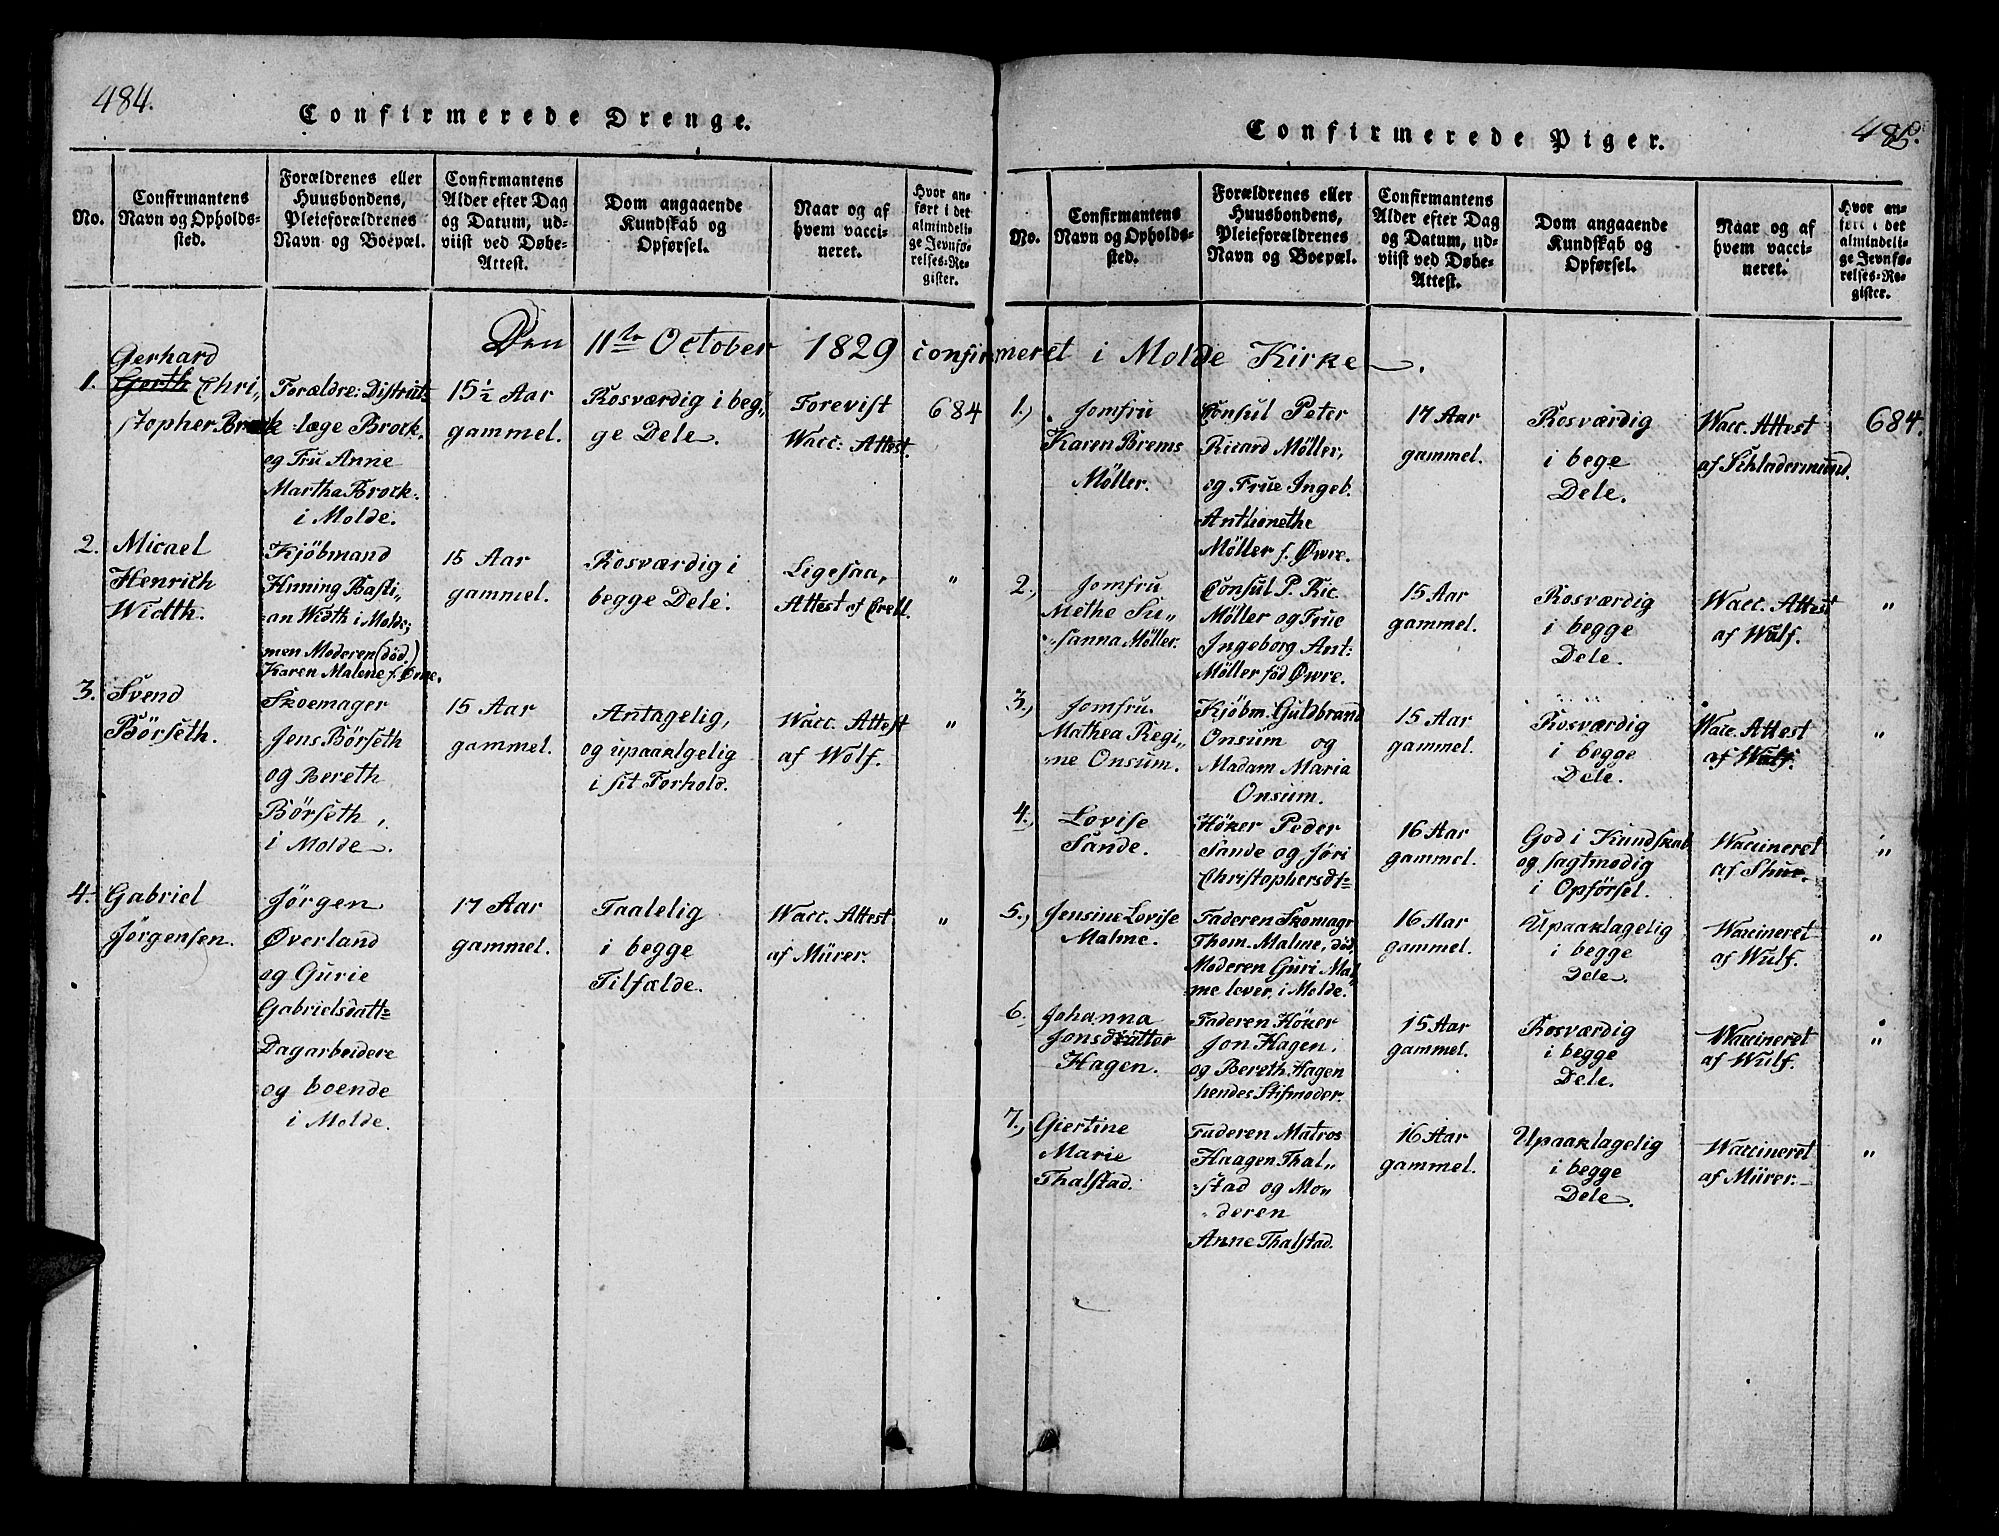 484.
Confirmerede Drenge.
No.
Confirmantens
Navn og Opholds-
sted.
Forældrenes eller
Huusbondens,
Pleieforældrenes
Navn og Boepæl.
Confirmantens
Alder efter Dag
og Datum, ud-
viist ved Døbe-
Attest.
Dom angaaende
Kundskab og
Opførsel.
Naar og af
hvem vacci-
neret.
Hvor an-
ført i det
almindeli-
ge Jevnfø-
relses-Re-
gister.
Den 11te October 1829 confirmeret i Molde Kirke.
1.
Gerhard
Gerth Chri,,
stopher Brock
Forældre: Distrikt-
læge Brock.
og Fru Anne
Martha Brock.
i Molde.
15½ Aar
gammel.
Rosværdig i beg,,
ge Dele.
Forevist
Vacc: Attest.
684
2.
Micael
Henrich
Width.
Kjöbmand
Hnning Basti,,
an Width i Molde;
men Moderen (død)
Karen Malene f. Örne.
15 Aar
gammel.
Rosværdig i
begge Dele.
Ligesaa,
Attest af Crell.
"
3.
Svend
Börseth.
Skoemager
Jens Börseth
og Bereth
Börseth,
i Molde.
15 Aar
gammel.
Antagelig,
og upaaklgelig
i sit Forhold.
Vacc. Attest
af Wolf.
"
4.
Gabriel
Jörgensen.
Jörgen
Øverland
og Gurie
Gabrielsdatt=
Dagarbeidere
og boende
i Molde.
17 Aar
gammel.
Taalelig
i begge
Tilfælde.
Vacc. Attest
af Mürer.
"
485.
Confirmerede Piger.
No.
Confirmantens
Navn og Opholds-
sted.
Forældrenes eller
Huusbondens,
Pleieforældrenes
Navn og Boepæl.
Confirmantens
Alder efter Dag
og Datum, ud-
viist ved Døbe-
Attest.
Dom angaaende
Kundskab og
Opførsel.
Naar og af
hvem vacci-
neret.
Hvor an-
ført i det
almindeli-
ge Jevnfø-
relses-Re-
gister.
1.,
Jomfru
Karen Brems
Møller.
Consul Peter
Ricard Møller,
og Frue Ingeb.
Anthonethe
Møller f. Øwre.
17 Aar
gammel.
Rosværdig
i bege
Dele.
Vacc. Attest
af Schladermund.
684.
2.,
Jomfru
Methe Su-
sanna Møller.
Consul P. Ric.
Møller og Frue
Ingeborg Ant:
Møller föd Øwre.
15 Aar
gammel.
Rosværdig
i begge
Dele.
Vacc. Attest
af Wulf.
"
3.,
Jomfru.
Mathea Regi,,
ne Onsum.
Kjöbm. Guldbrand
Onsum og
Madam Maria
Onsum.
15 Aar
gammel.
Rosværdig
i begge
Dele.
Vacc. Attest
af Wulf.
"
4.,
Lovise
Sande.
Höker Peder
Sande og Jöri
Christophersdt=
16 Aar
gammel.
God i Kundskab
og sagtmodig
i Opförsel.
Vaccineret
af Shur.
"
5.,
Jensine Lovise
Malme.
Faderen Skomagr
Thom. Malme, död,
Moderen Guri Mal
me lever, i Molde.
16 Aar
gammel.
Upaaklagelig
i begge
Dele.
Vaccineret
af Wulf.
"
6.
Johanna
Jonsdatter
Hagen.
Faderen Höker
Jon Hagen,
og Bereth Hagen
hendes Stifmoder.
15 Aar
gammel.
Rosværdig
i begge
Dele.
Vaccineret
af Wulf.
"
7.,
Giertine
Marie
Thalstad.
Faderen Matros
Haagen Thal,,
stad og Mo,,
deren
Anne Thalstad.
16 Aar
gammel.
Upaaklagelig
i begge
Dele.
Vaccineret
af Mürer.
"